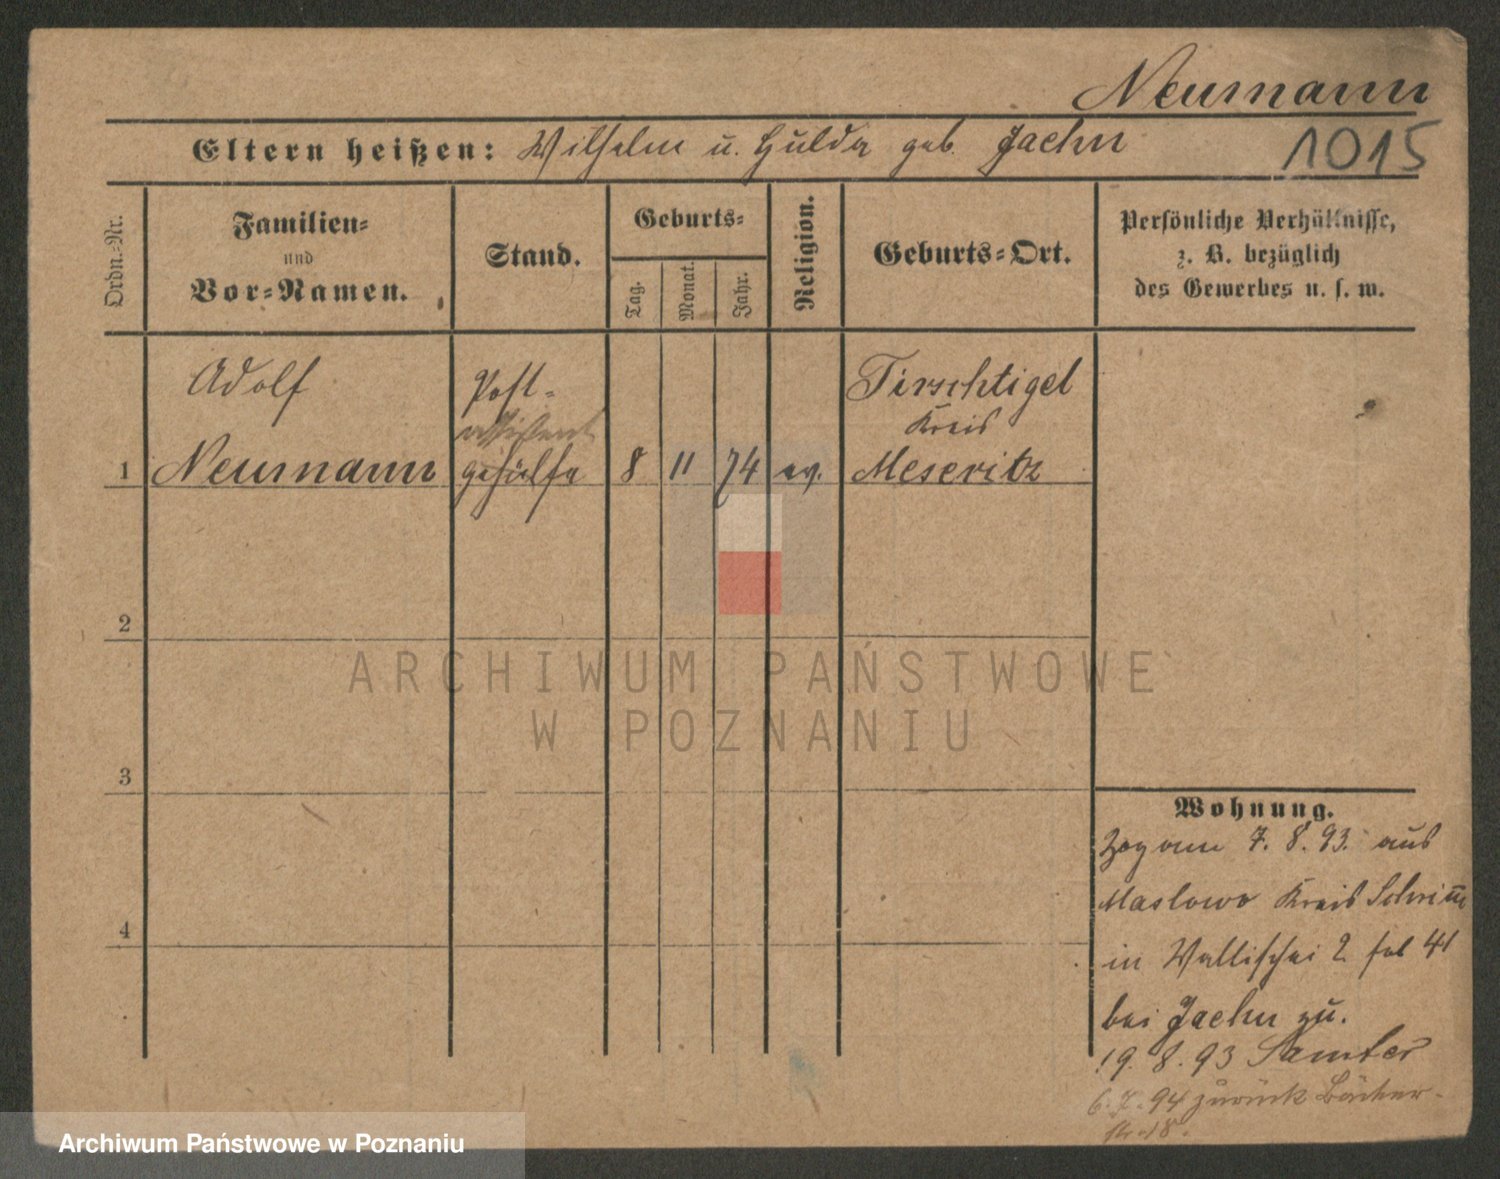 Neumann
Eltern heißen: Wilhelm u. Hulda geb. Jaehn
1015
Ordn.-Nr.
Familien-
und
Vor-Namen.
Stand.
Geburts-
Tag.
Monat.
Jahr.
Religion.
Geburts-Ort.
Persönliche Verhältnisse,
z. B. bezüglich
des Gewerbes u. s. w.
Adolf
Post-
assistent
1 Neumann gehülfe 8 11 74 ev.
Tirschtigel
Kreis
Meseritz
2
3
4
ARCHIWUM PAŃSTWOWE
W POZNANIU
Wohnung.
Zog am 7. 8. 93. aus
Maslowo Kreis Schrim̅
in Wallischei 2 41
bei Jaehn zu.
19. 8. 93 Samter
6. 7. 94 zurück Bäcker-
str. 18.
Archiwum Państwowe w Poznaniu